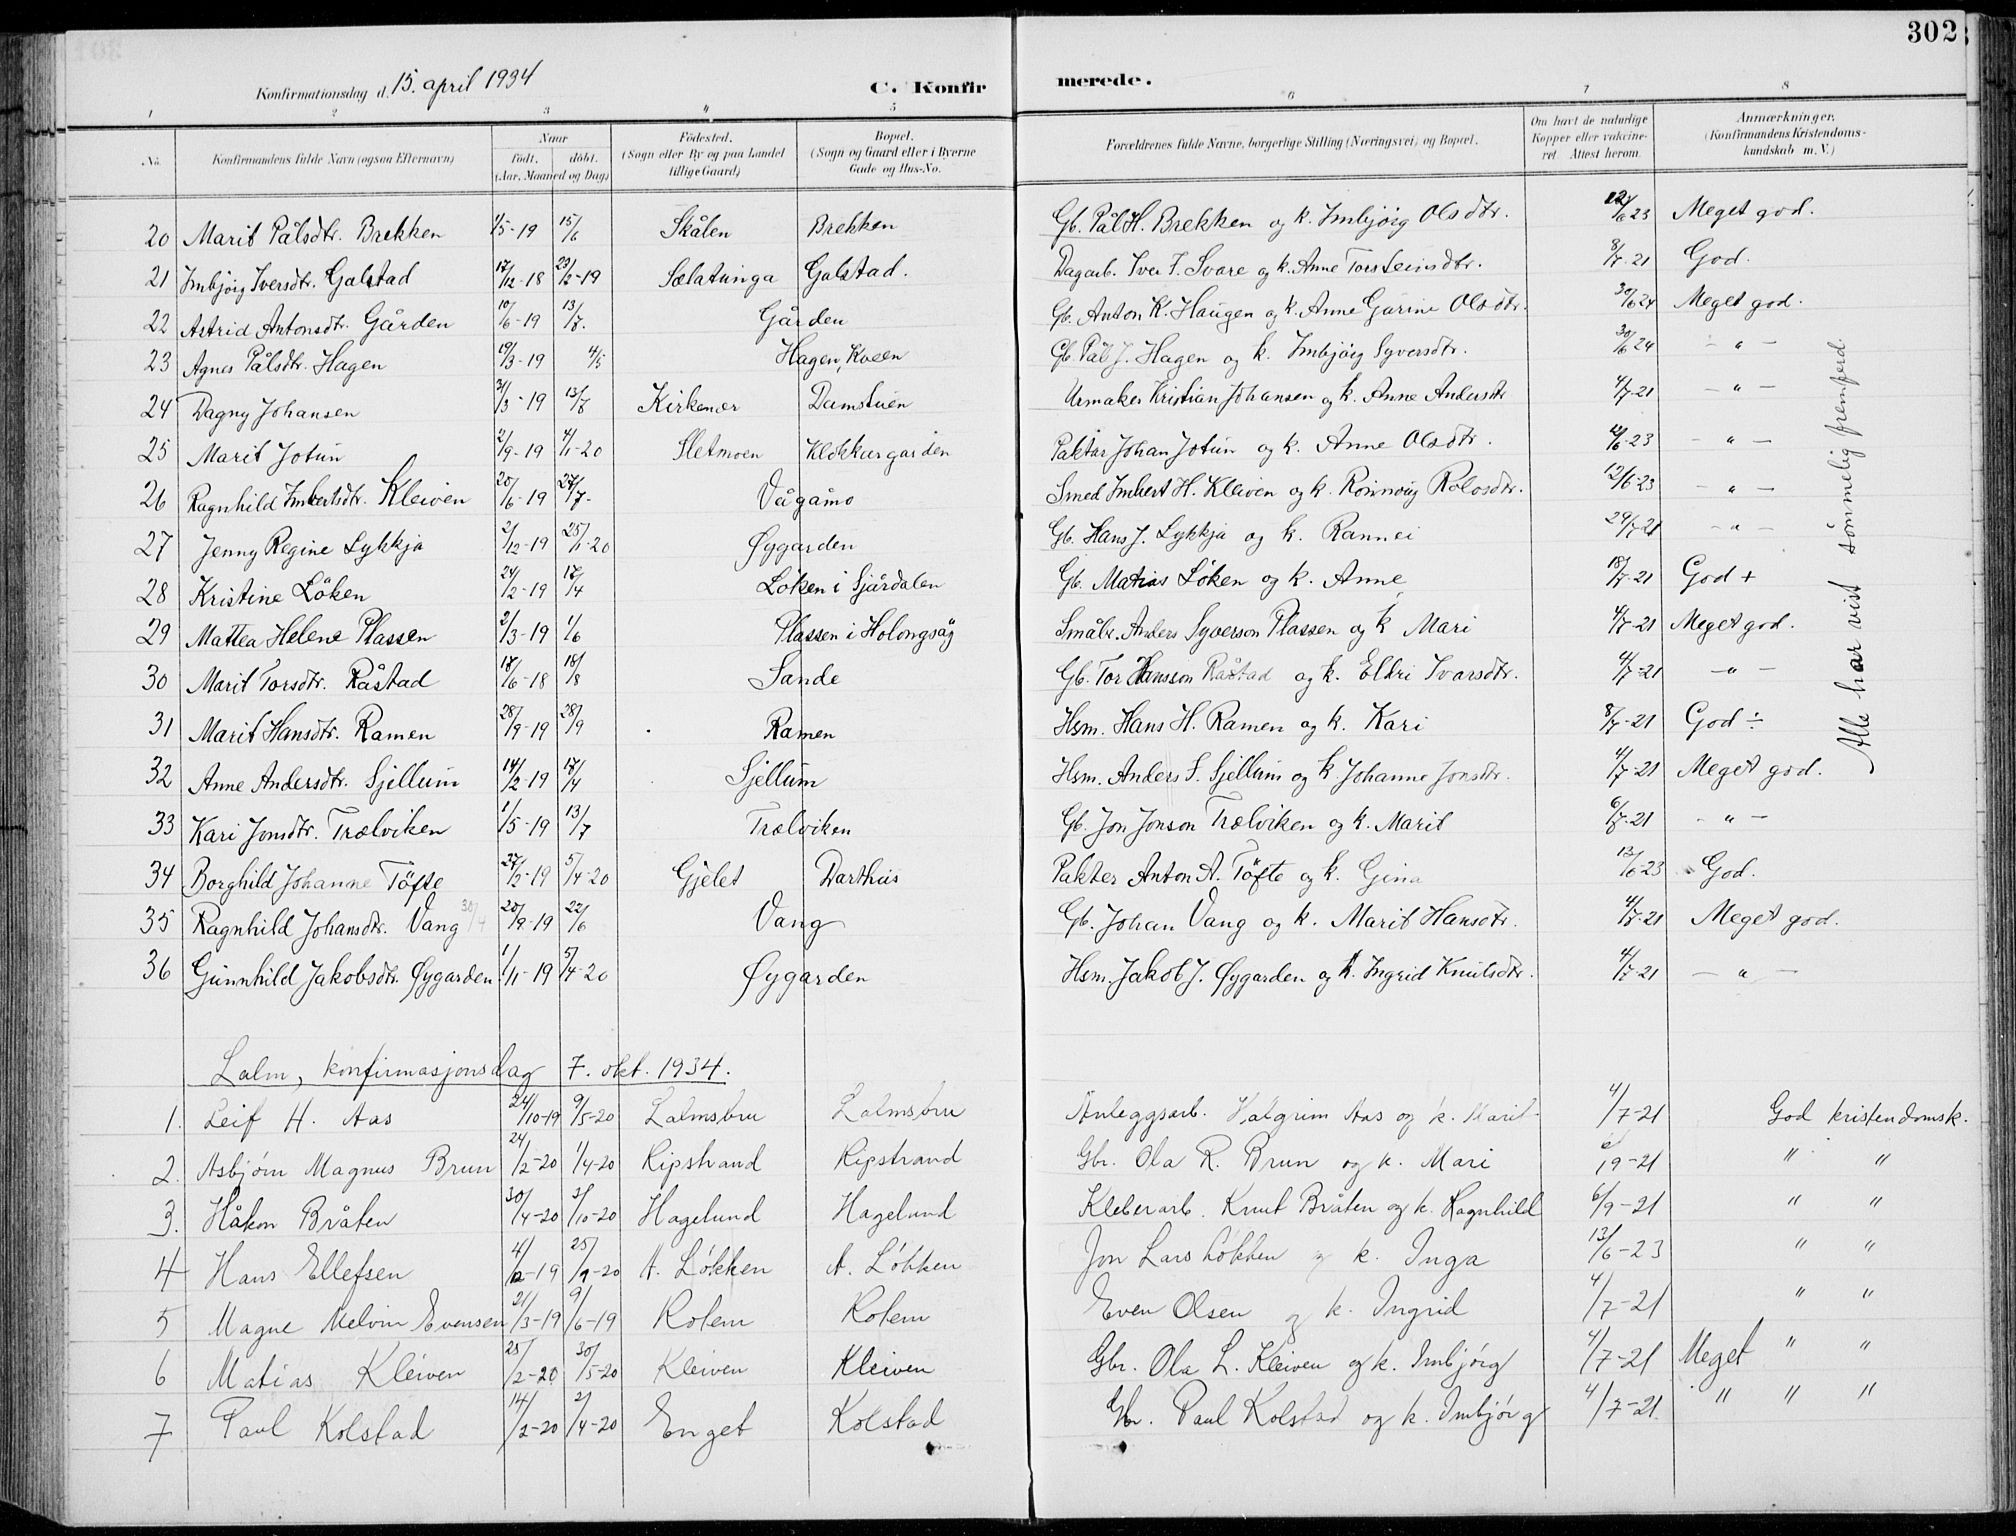 302
Konfirmationsdag d. 15. april 1934
C. Konfirmerede.
1 2 3 4 5 6 7 8
No. Konfirmandens fulde Navn (ogsaa Efternavn) Naar født. døbt. (Aar, Maaned og Dag) Fødested. (Sogn eller By og paa Landet tillige Gaard) Bopæl. (Sogn og Gaard eller i Byerne Gade og Hus-No. Forældrenes fulde Navne, borgerlige Stilling (Næringsvei) og Bopæl. Om havt de naturlige Kopper eller vaccineret Attest herom. Anmærkninger. (Konfirmandens Kristendomskundskab m. V.)
20 Marit Pålsdtr. Brekken 1/5-19 15/6 Skålen Brekken Gb. Pål H. Brekken og k. Imbjörg Olsdtr. 12/6 23 Meget god.
21 Imbjörg Iversdtr. Galstad 17/12-18 23/2-19 Sælatunga Galstad. Dagarb. Iver T. Svare og k. Anne Torsteinsdtr. 8/7-21 God.
22 Astrid Antonsdtr. Gården 10/6-19 13/7. Gården Gb. Anton K. Haugen og k. Anne Gurine Olsdtr. 30/6 24 Meget god.
23 Agnes Pålsdtr. Hagen 19/3-19 4/5 Hagen, Kveen Gb. Pål J. Hagen og k. Imbjörg Syversdtr. 30/6 24 - " -
24 Dagny Johansen 31/3-19 13/8 Kirkenær Damstuen Urmaker Kristian Johansen og k. Anne Andersdtr 4/7-21 - " -
25 Marit Jotun 2/9-19 4/1-20 Sletmoen Klokkargarden Paktar Johan Jotun og k. Anne Olsdtr. 12/6-23 - " -
26 Ragnhild Imbertsdtr. Kleiven 20/6-19 27/7- Vågåmo Smed Imbert H. Kleiven og k. Rönnoug Rolvsdtr. 12/6-23 - " -
27 Jenny Regine Lykkja 2/12-19 25/1-20 Øygarden Gb. Hans J. Lykkja og k. Rannei 29/7 21 - " -
28 Kristine Löken 24/2-19 17/4 Löken i Sjårdalen Gb. Matias Löken og k. Anne 18/7-21 God +
29 Mattea Helene Plassen 2/3-19 1/6 Plassen i Holongsåg Småbr. Anders Syverson Plassen og k Mari 4/7-21 Meget god.
30 Marit Torsdtr. Råstad 17/6-18 18/8 Sande Gb. Tor Hansson Råstad og k. Eldri Ivarsdtr. 4/7-21 - " -
31 Marit Hansdtr. Ramen 28/9-19 28/9 Ramen Hsm. Hans H. Ramen og k. Kari 8/7-21 God ÷
32 Anne Andersdtr. Sjellum 14/2-19 17/4 Sjellum Hsm. Anders S. Sjellum og k. Johanne Jonsdtr. 4/7-21 Meget god.
33 Kari Jonsdtr. Trælviken 1/5-19 13/7 Trælviken Gb. Jon Jonson Trælviken og k. Marit 6/8-21 - " -
34 Borghild Johanne Töfte 27/12-19 5/4-20 Gjelet Darthus Pakter Anton A. Töfte og k. Gina 12/6-23 God.
35 Ragnhild Johansdtr. Vang 20/9-19 22/6 Vang Gb. Johan Vang og k. Marit Hansdtr. 4/7-21 Meget god.
36 Gunnhild Jakobsdtr. Øygarden 1/11-19 5/4-20 Øygarden Hsm. Jakob J. Øygarden og k. Ingrid Knutsdtr. 4/7-21 - " -
Alle har vist sömmelig fremferd.
Lalm, konfirmasjonsdag 7. okt. 1934.
1. Leif H. Aas 24/10-19 9/5-20 Lalmsbru Lalmsbru Anleggsarb. Halgrim Aas og k. Marit 4/7-21 God kristendomsk.
2. Asbjörn Magnus Brun 24/2-20 1/4-20 Ripstrand Ripstrand Gbr. Ola R. Brun og k. Mari 6/9-21 " "
3. Håkon Bråten 30/4-20 3/10-20 Hagelund Hagelund Kleberarb. Knut Bråten og k. Ragnhild 6/9-21 " "
4 Hans Ellefsen 4/12-19 25/9-20 A. Lökken A. Lökken Jon Lars Lökken og k. Inga 13/6-23 " "
5 Magne Melvin Evensen 21/3-19 9/6-19 Rolem Rolem Even Olsen og k. Ingrid 4/7-21 " "
6 Matias Kleiven 25/2-20 30/5-20 Kleiven Kleiven Gbr. Ola L. Kleiven og k. Imbjörg 4/7-21 Meget " "
7 Paul Kolstad 14/2-20 2/4-20 Enget Kolstad Gbr. Paul Kolstad og k. Imbjörg 4/7-21. " " "